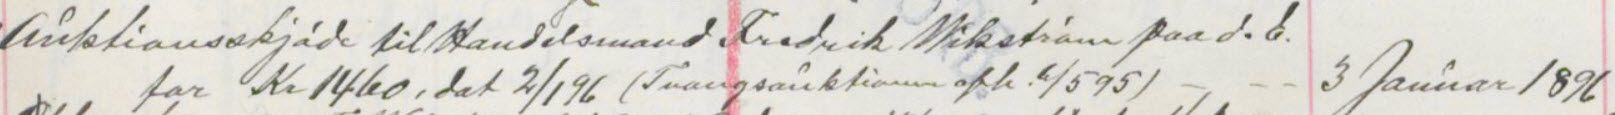 Auktionsskjøde til Handelsmand Fredrik Wikstrøm paa d. E.
for Kr 1460, dat 2/1 96 (Tvangsauktionen afh. 6/5 95) - - - 3 Januar 1896